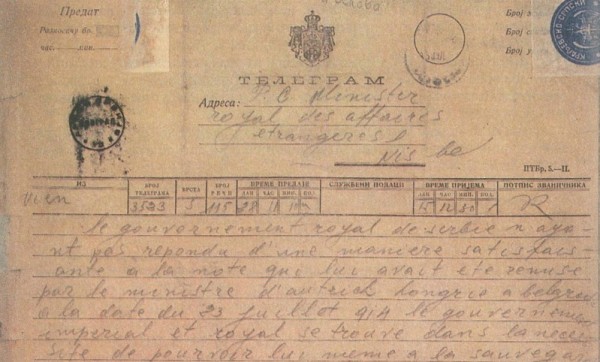 Предат
Разносачу бр.
час. мин.
Број
Број
Број
КРАЉЕВСКИ СРПСКИ
ТЕЛЕГРАМ
Адреса: S. E. Minister
royal des affaires
etrangeres
Nis
ПТБр. 5.—II.
ИЗ
БРОЈ ТЕЛЕГРАМА
ВРСТА
БРОЈ РЕЧИ
ВРЕМЕ ПРЕДАЈЕ
ДАН ЧАС МИН.
СЛУЖБЕНИ ПОДАЦИ
ВРЕМЕ ПРИЈЕМА
ДАН ЧАС МИН.
ПОТПИС ЗВАНИЧНИКА
Wien 3523 5 115 28 11 15 12 30
le gouvernement royal de serbie n aya
nt pas repondu d'une maniere satisfais
ante à la note qui lui avait ete remise
par le ministre d'autrich hongrie a belgra
a la date du 23 juillot 914 le gouvernemen
imperial et royal se trouve dans la nece
site de pourvoir lui meme a la sauvegar